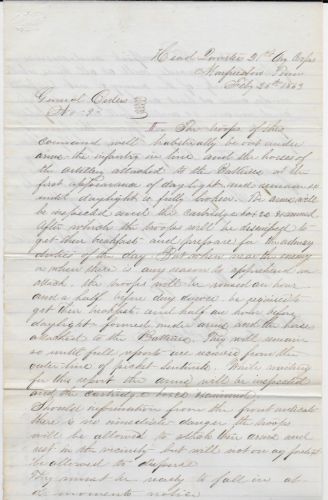 Head Quarters 21st Ar Corps
Murfreesboro Tenn
Feby 26th 1863
General Orders
No 3
I. The troops of this
command will habitually be out under
arms the infantry in line and the horses of
the artillery attached to the Batteries at the
first appearance of daylight and remain so
until daylight is fully broken. The arms will
be inspected and the cartridge boxes examined
After which the troops will be dismissed to
get their breakfast and prepare for the
duties of the day. But when near the enemy
or when there is any reason to apprehend an
attack the troops will be roused an hour
and a half before day dawn be required to
get their breakfast and half an hour before
daylight formed under arms and the horses
attached to the Batteries. They will remain
so until full reports are received from the
outer line of picket sentinels. While waiting
for this report the arms will be inspected
and the cartridge boxes examined
Should information from the front indicate
there is no immediate danger the troops
will be allowed to stack their arms and
rest in the vicinity but will not on any pretext
be allowed to disperse
They must be ready to fall in at
a moments notice